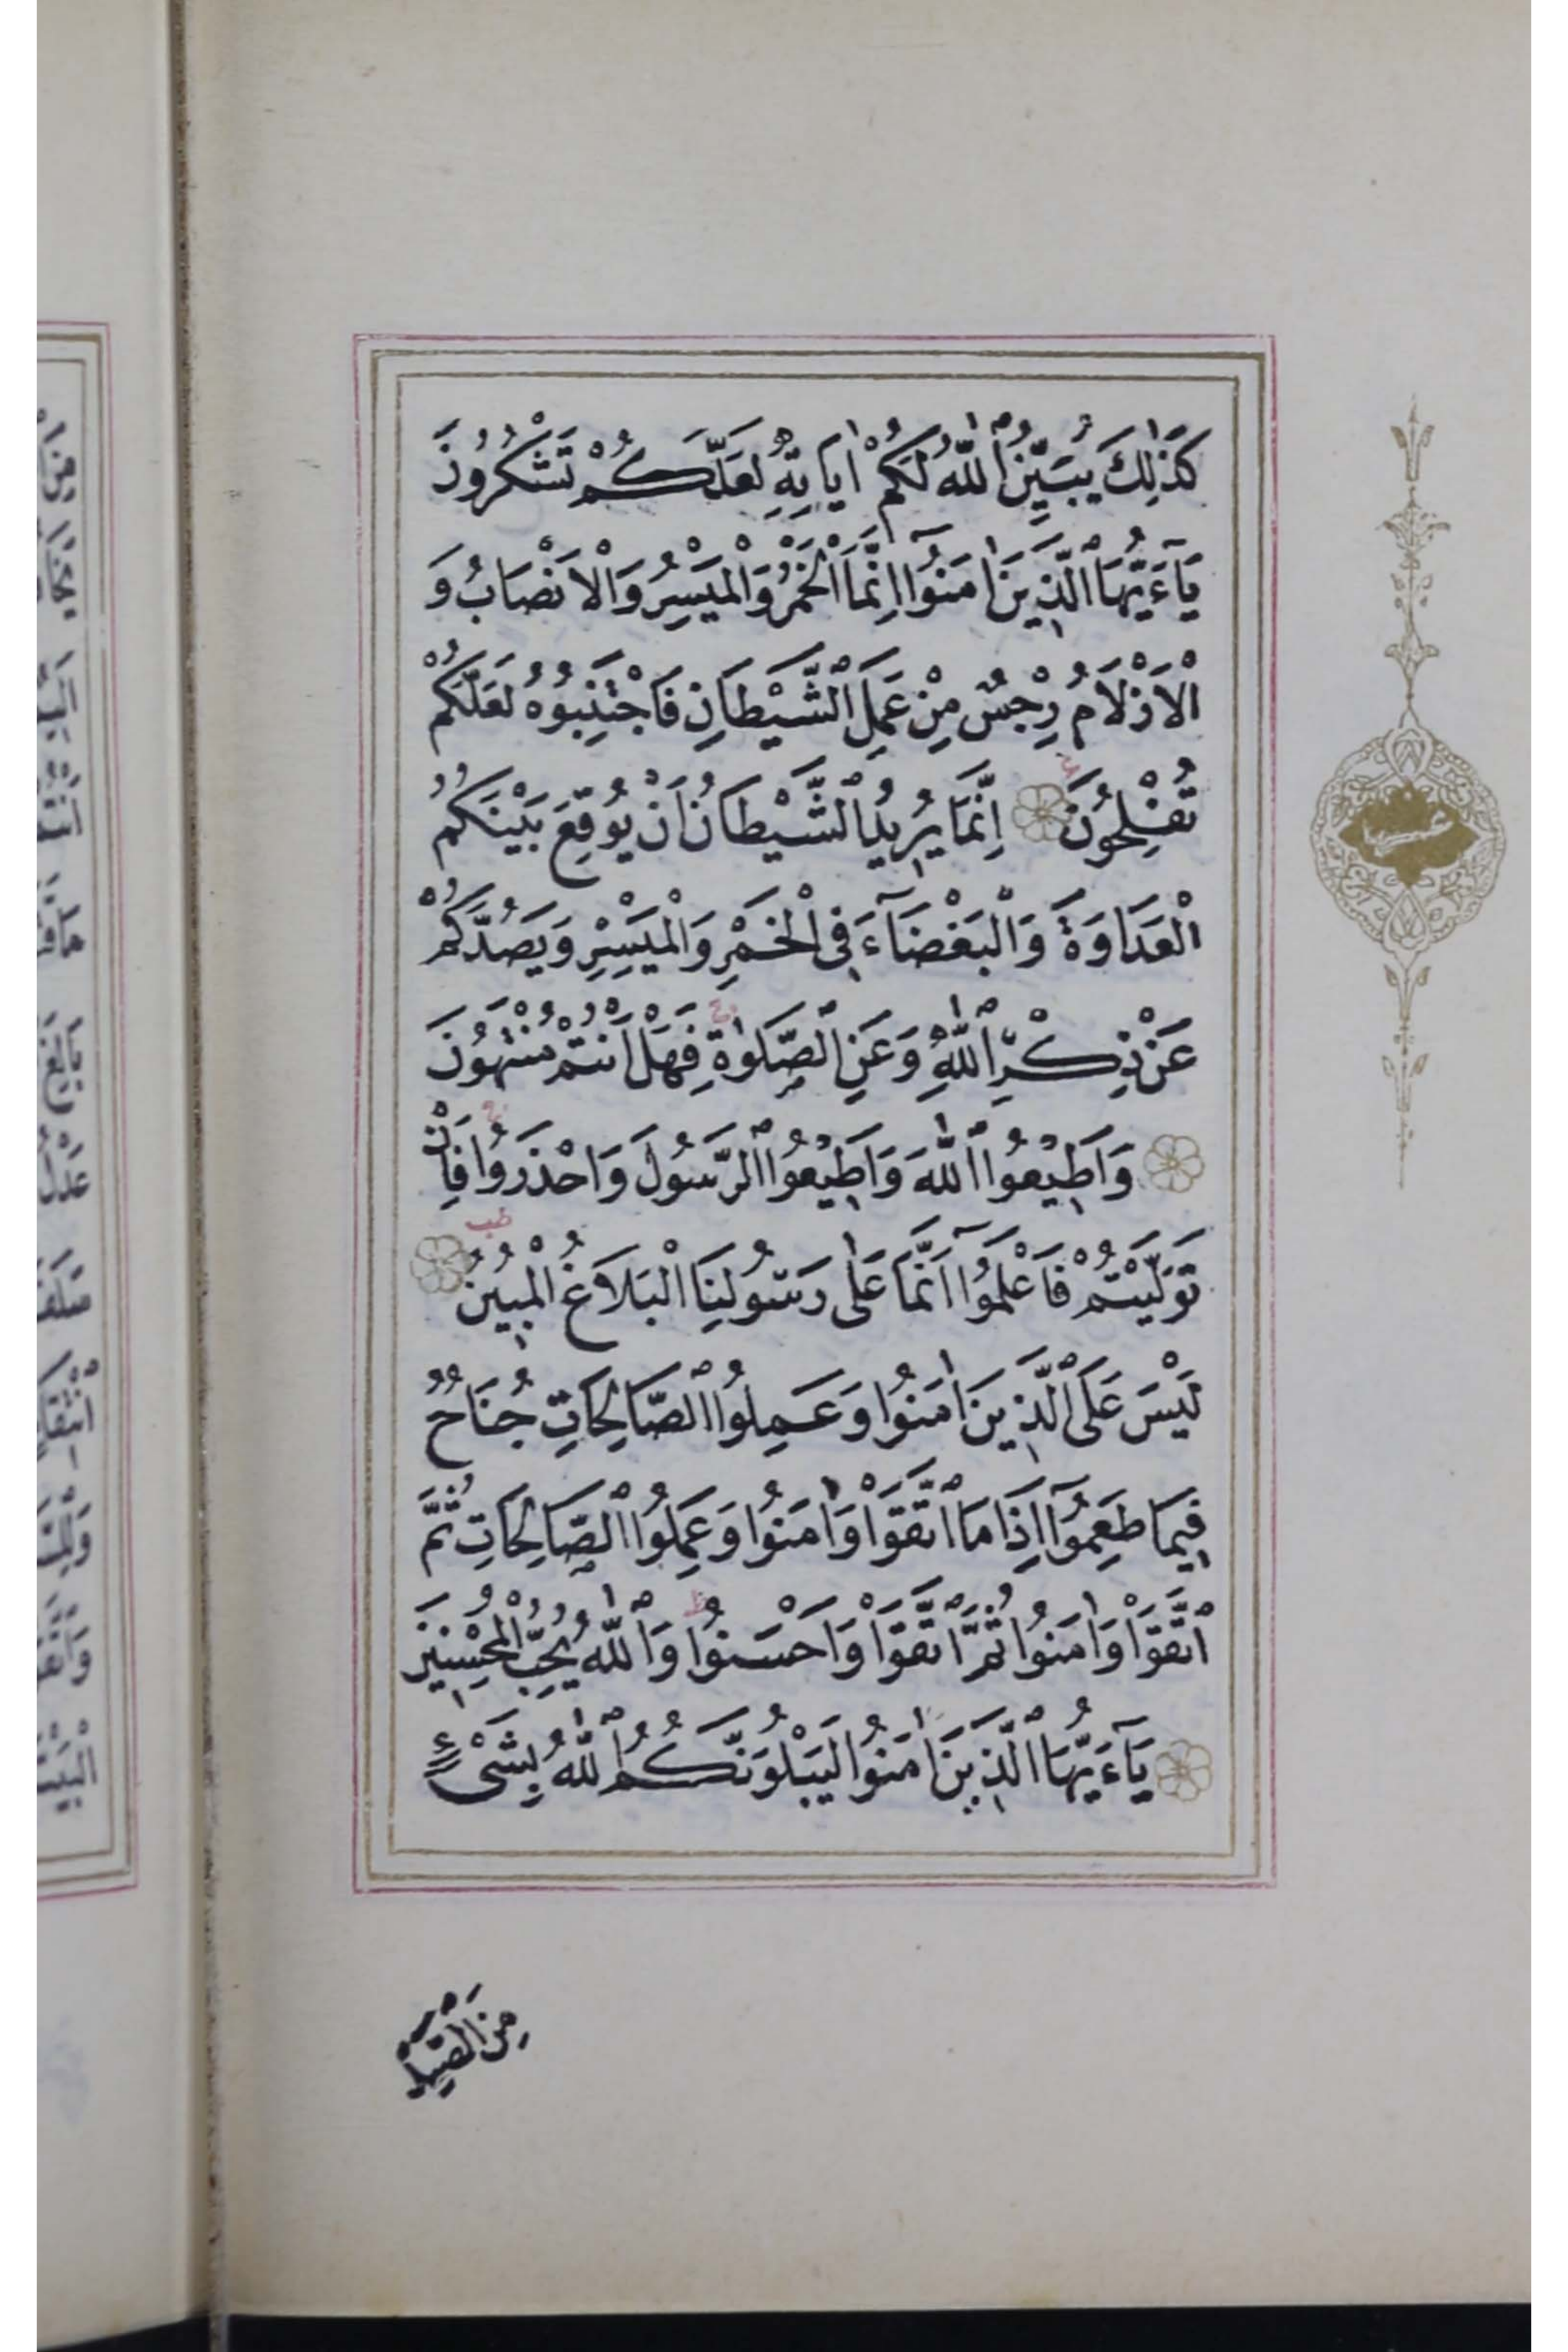 كَذٰلِكَ يُبَيِّنُ ٱللّٰهُ لَكُمْ اٰيَاتِهٖ لَعَلَّكُمْ تَشْكُرُونَ
يَآءَيُّهَا ٱلَّذِينَ اٰمَنُوٓا اِنَّمَا الْخَمْرُ وَالْمَيْسِرُ وَالْاَنْصَابُ وَ
الْاَزْلَامُ رِجْسٌ مِنْ عَمَلِ ٱلشَّيْطَانِ فَاجْتَنِبُوهُ لَعَلَّكُمْ
تُفْلِحُونَ اِنَّمَا يُرِيدُ ٱلشَّيْطَانُ اَنْ يُوقِعَ بَيْنَكُمُ
الْعَدَاوَةَ وَالْبَغْضَآءَ فِى الْخَمْرِ وَالْمَيْسِرِ وَيَصُدَّكُمْ
عَنْ ذِكْرِ ٱللّٰهِ وَعَنِ ٱلصَّلٰوةِ فَهَلْ اَنْتُمْ مُنْتَهُونَ
وَاَطِيعُوا ٱللّٰهَ وَاَطِيعُوا ٱلرَّسُولَ وَاحْذَرُوا فَاِنْ
تَوَلَّيْتُمْ فَاعْلَمُوٓا اَنَّمَا عَلٰى رَسُولِنَا الْبَلَاغُ الْمُبِينُ
لَيْسَ عَلَى ٱلَّذِينَ اٰمَنُوا وَعَمِلُوا ٱلصَّالِحَاتِ جُنَاحٌ
فِيمَا طَعِمُوٓا اِذَا مَا ٱتَّقَوْا وَاٰمَنُوا وَعَمِلُوا ٱلصَّالِحَاتِ ثُمَّ
ٱتَّقَوْا وَاٰمَنُوا ثُمَّ ٱتَّقَوْا وَاَحْسَنُوا وَٱللّٰهُ يُحِبُّ الْمُحْسِنِينَ
يَآءَيُّهَا ٱلَّذِينَ اٰمَنُوا لَيَبْلُوَنَّكُمُ ٱللّٰهُ بِشَىْءٍ
مِنَ ٱلصَّيْدِ